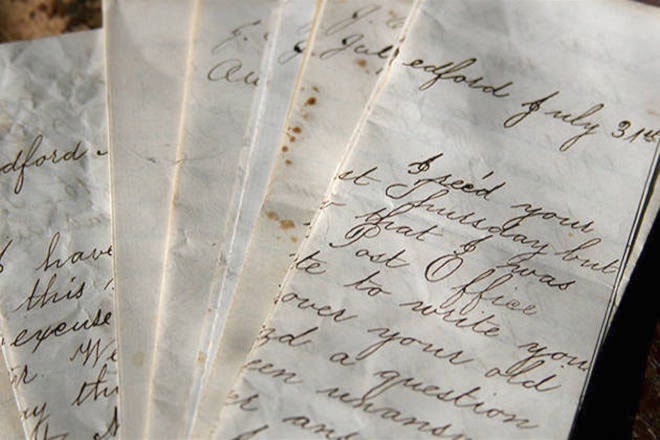 dford
I have
this
excuse
r. We
y th
J.
Au
J. Jul
edford July 31st
I rec'd your
st Thursday but
that I was
Post Office
te to write you
over your old
zd a question
een unansw
er an